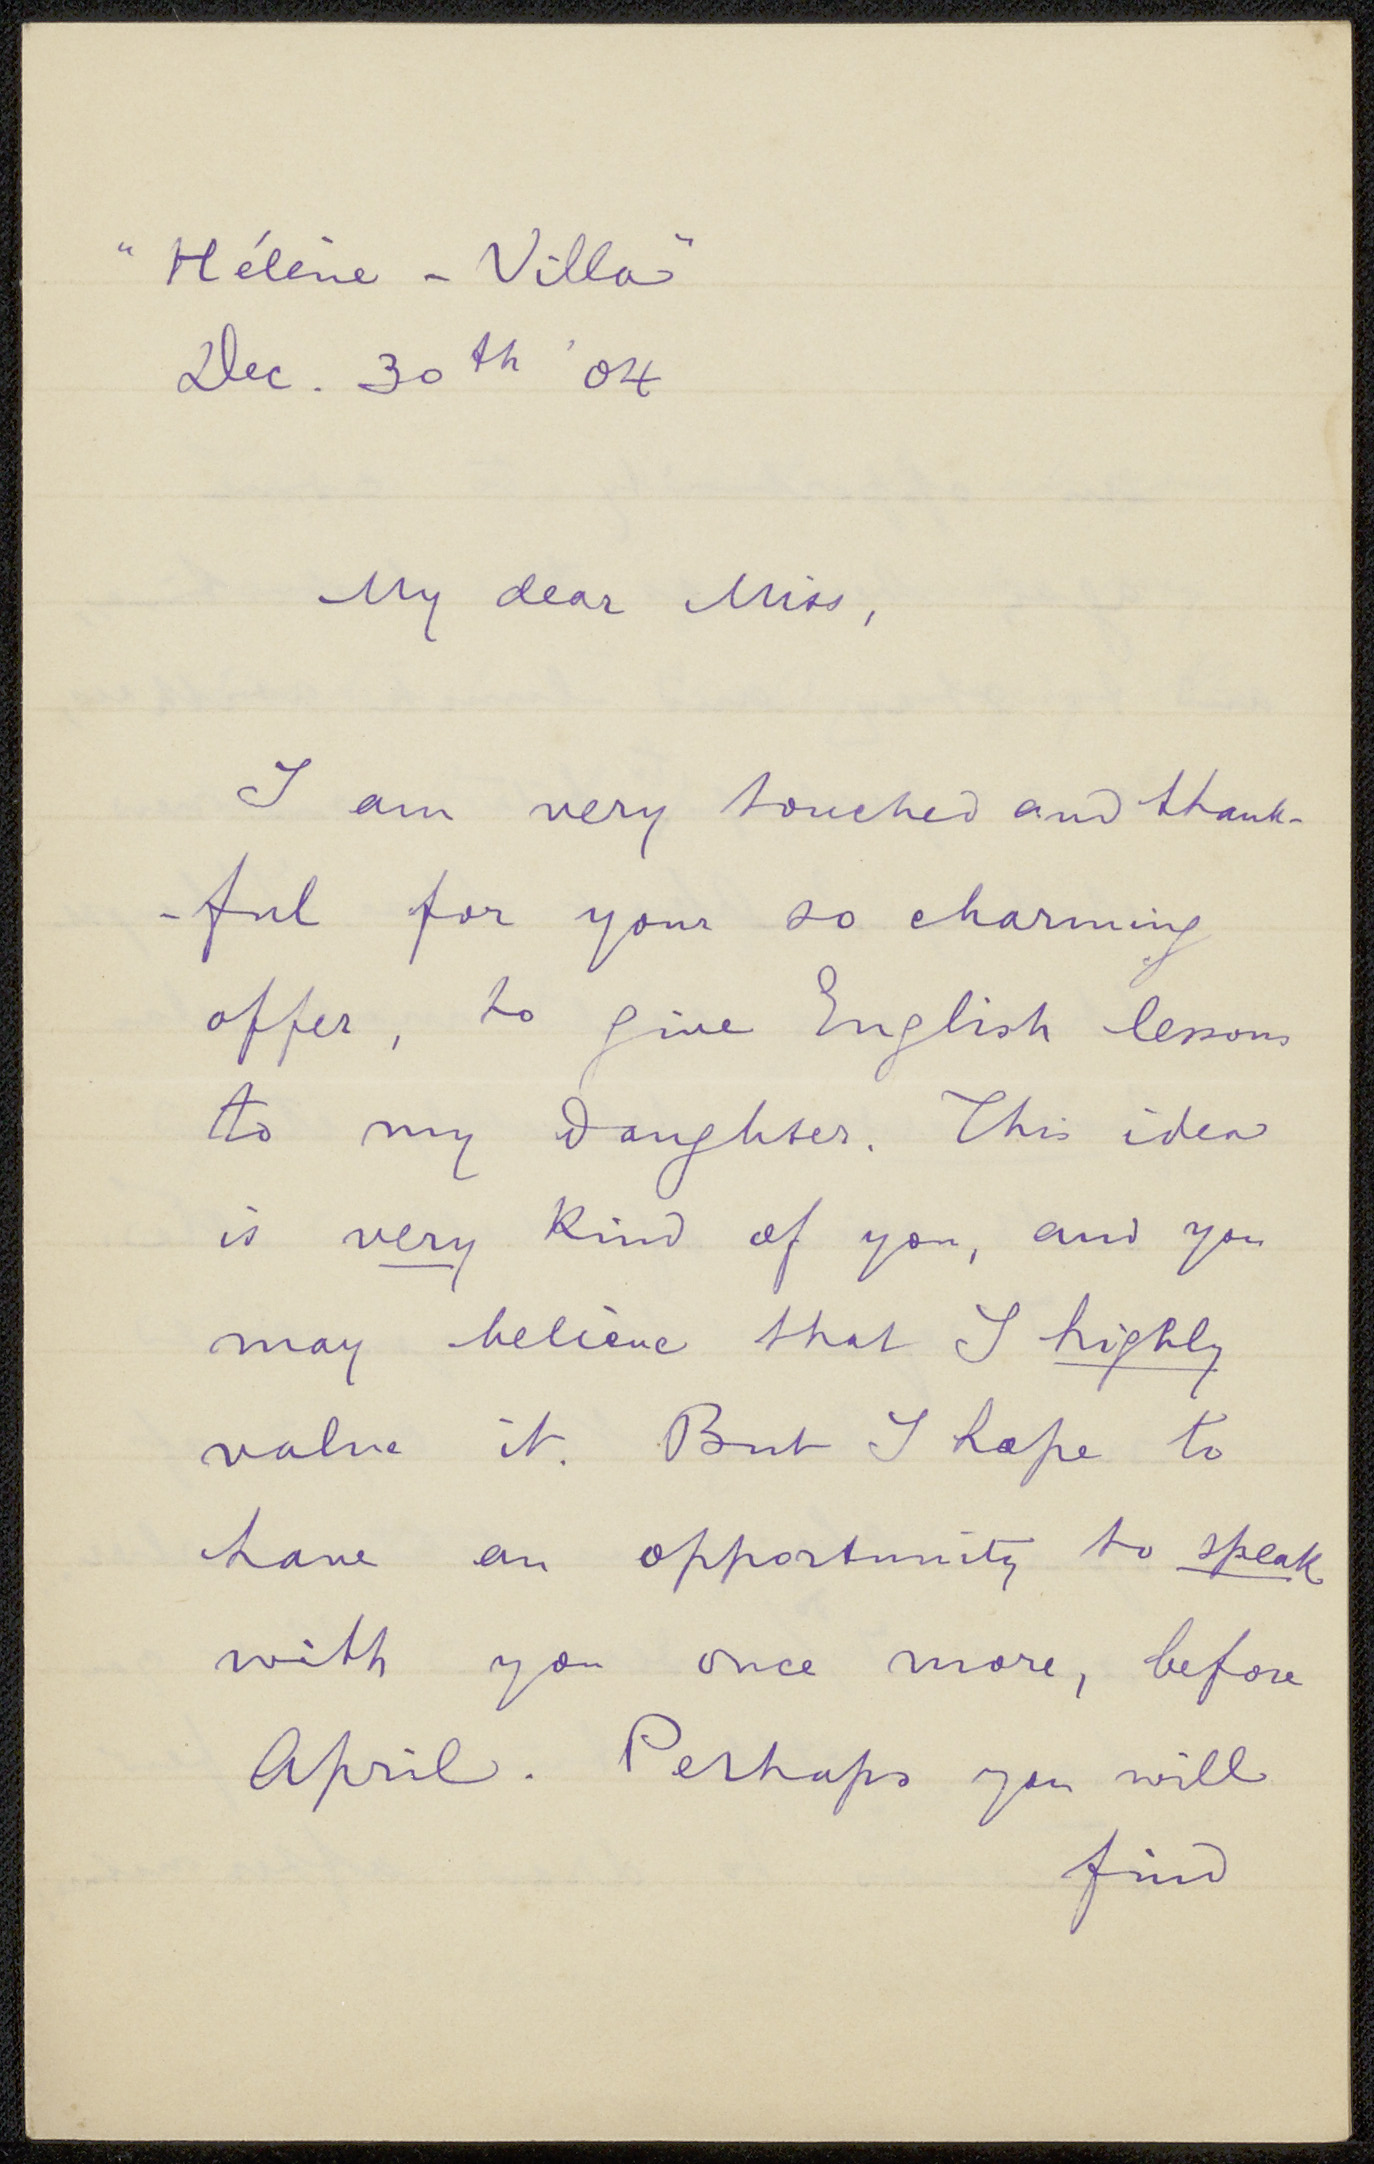 "Hélène - Villa"
Dec. 30th '04
My dear Miss,
I am very touched and thank-
-ful for your so charming
offer, to give English lessons
to my Daughter. This idea
is very kind of you, and you
may believe that I highly
value it. But I hope to
have an opportunity to speak
with you once more, before
April. Perhaps you will
find